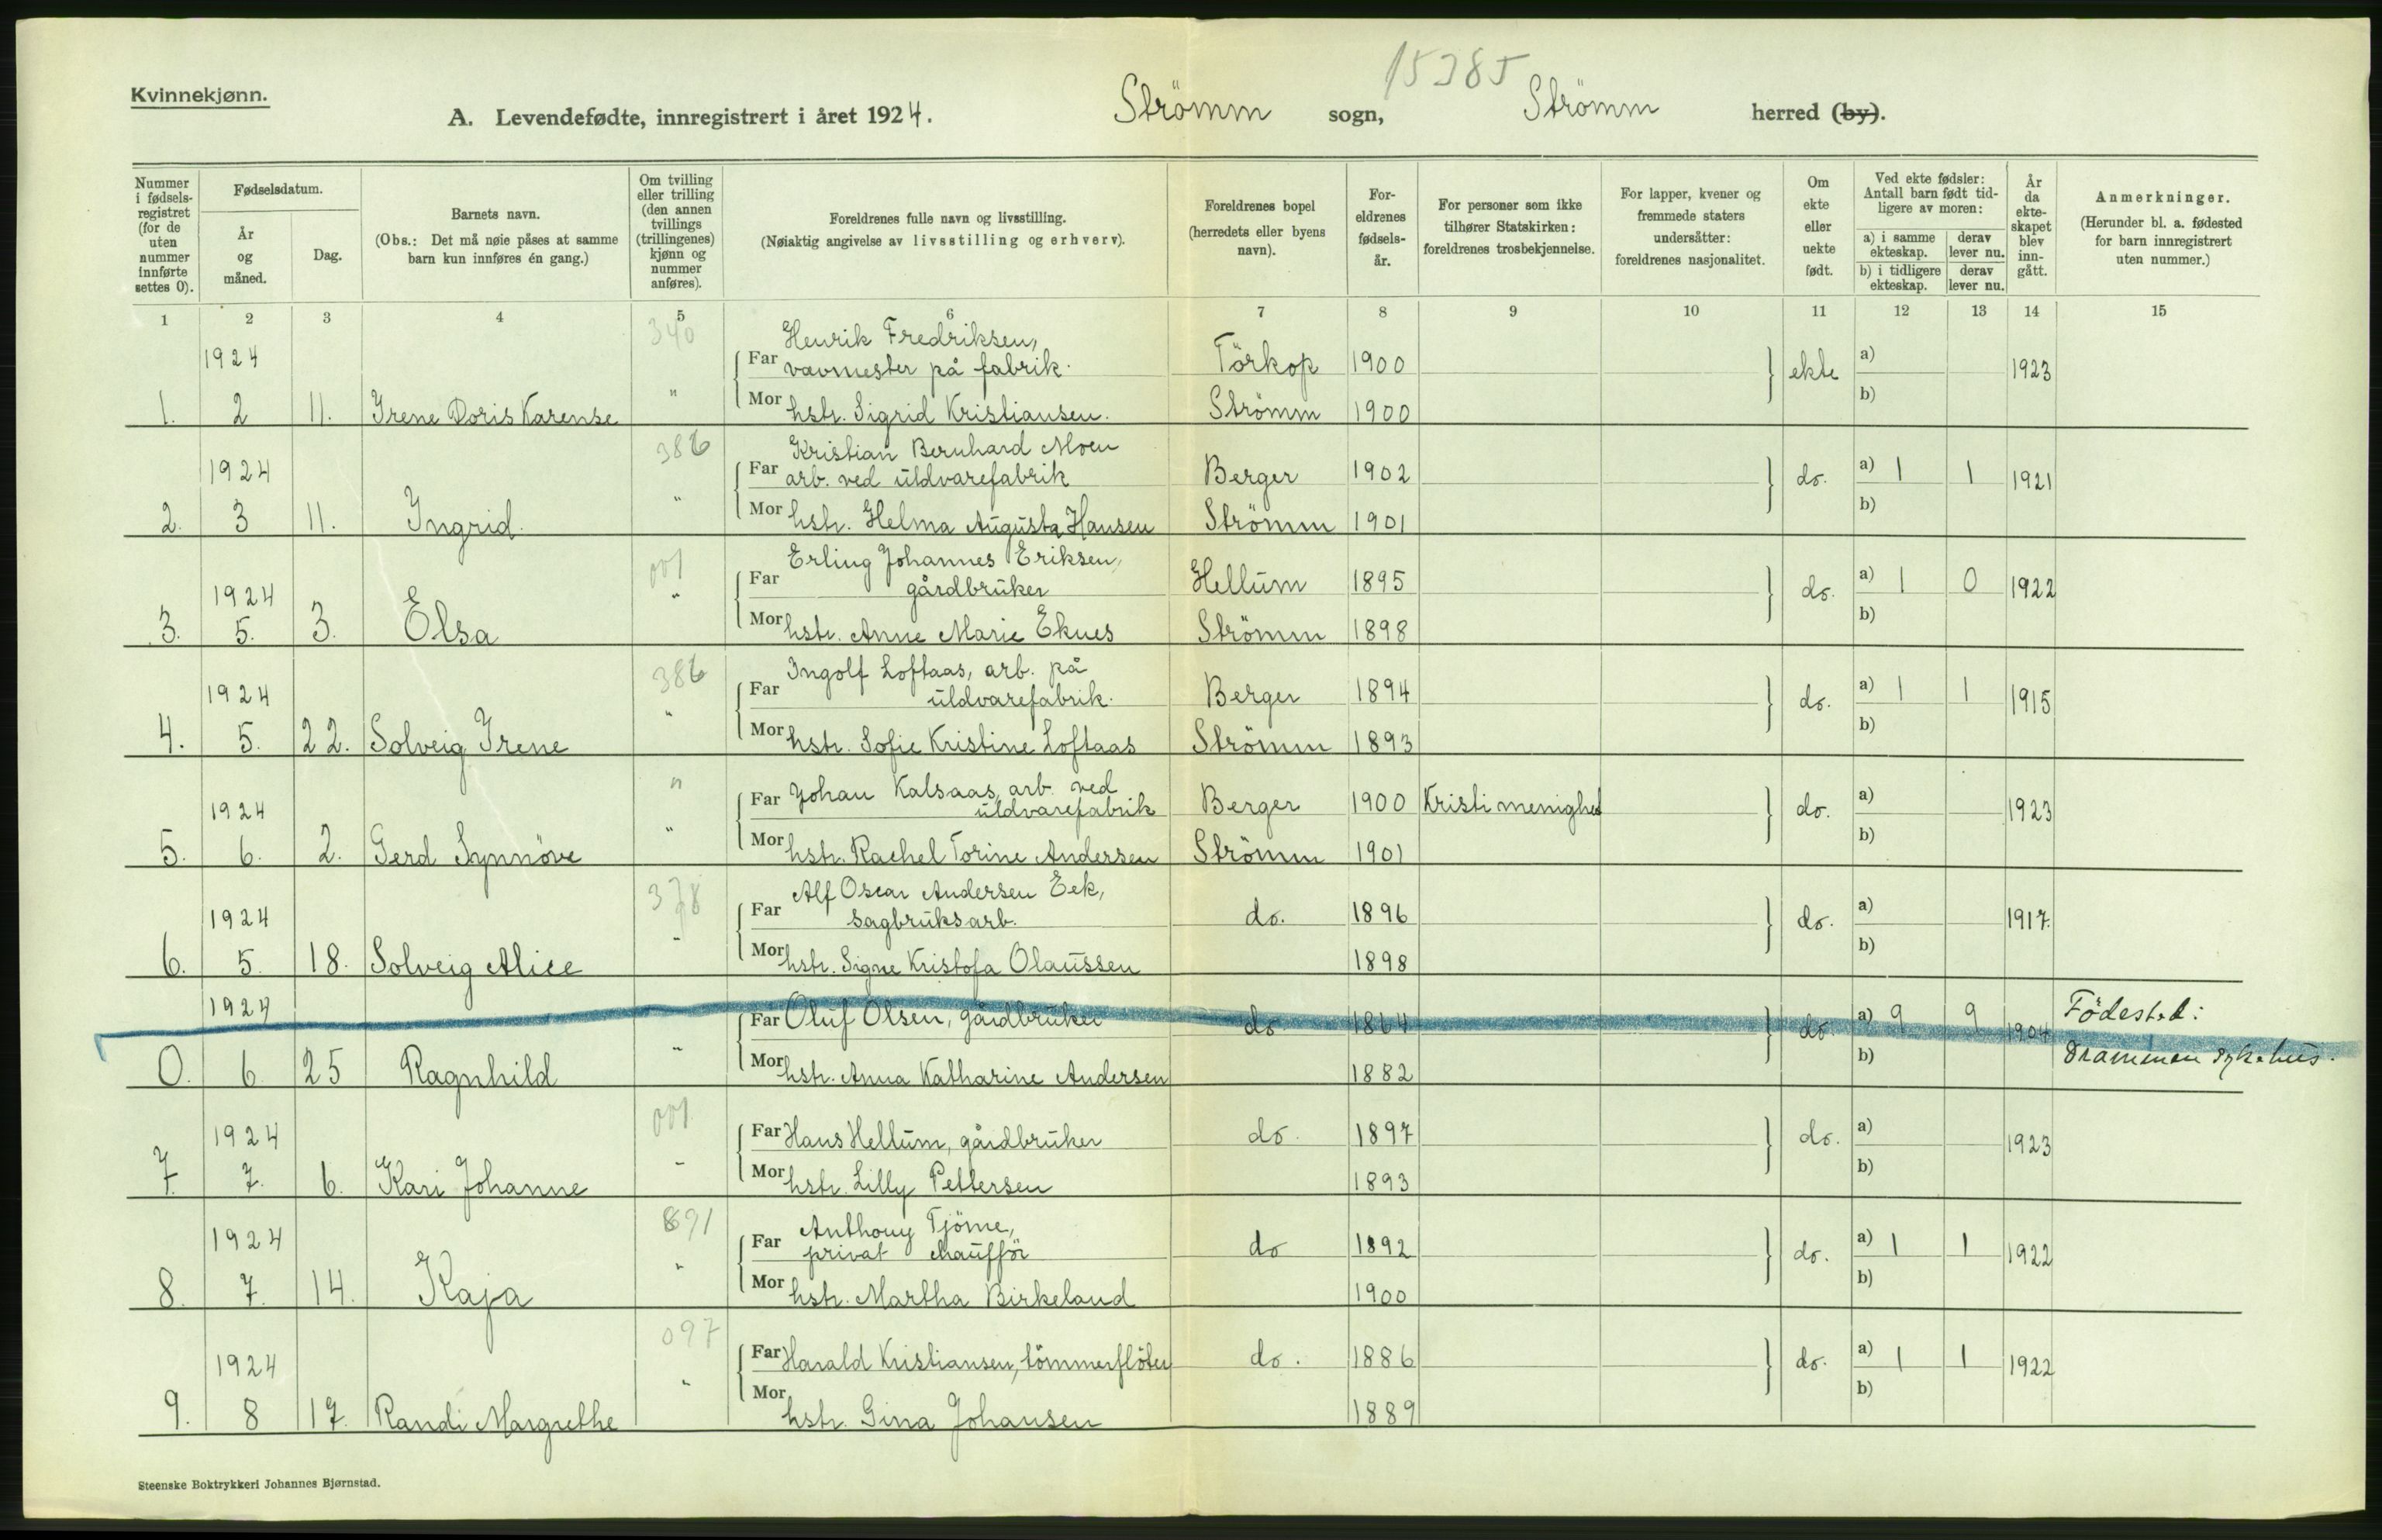 15385
Kvinnekjønn.
A. Levendefødte, innregistrert i året 1924. Strömm sogn, Strömm herred (by).
Nummer i fødsels-registret (for de uten nummer innførte settes 0).
Fødselsdatum.
År og måned.
Dag.
Barnets navn.
(Obs.: Det må nøie påses at samme barn kun innføres én gang.)
Om tvilling eller trilling (den annen tvillings (trillingenes) kjønn og nummer anføres).
Foreldrenes fulle navn og livsstilling.
(Nøiaktig angivelse av livsstilling og erhverv).
Foreldrenes bopel (herredets eller byens navn).
For-eldrenes fødsels-år.
For personer som ikke tilhører Statskirken: foreldrenes trosbekjennelse.
For lapper, kvener og fremmede staters undersåtter: foreldrenes nasjonalitet.
Om ekte eller uekte født.
Ved ekte fødsler: Antall barn født tid-ligere av moren:
a) i samme ekteskap. derav lever nu.
b) i tidligere ekteskap. derav lever nu.
År da ekte-skapet blev inn-gått.
Anmerkninger.
(Herunder bl. a. fødested for barn innregistrert uten nummer.)
1 2 3 4 5 6 7 8 9 10 11 12 13 14 15
340 Henrik Fredriksen,
1924 Far vævmester på fabrik. Törkop 1900 ekte a) 1923
1. 2 11. Irene Doris Karense " Mor hstr. Sigrid Kristiansen. Strömm 1900 b)
386 Kristian Bernhard Moen
1924 Far arb. ved uldvarefabrik Berger 1902 do. a) 1 1 1921
2. 3 11. Ingrid. " Mor hstr. Helma Augusta Hansen Strömm 1901 b)
001 Erling Johannes Eriksen,
1924 Far gårdbruker Hellum 1895 do. a) 1 0 1922
3. 5. 3. Elsa " Mor hstr. Anne Marie Eknes Strömm 1898 b)
386 Ingolf Loftaas, arb. på
1924 Far uldvarefabrik. Berger 1894 do. a) 1 1 1915
4. 5. 22. Solveig Irene " Mor hstr. Sofie Kristine Loftaas Strömm 1893 b)
" Far Johan Kalsaas, arb. ved
1924 uldvarefabrik Berger 1900 Kristi menighed do. a) 1923
5. 6. 2. Gerd Synnöve " Mor hstr. Rachel Torine Andersen Strömm 1901 b)
378 Alf Oscar Andersen Eek,
1924 Far sagbruksarb. do. 1896 do. a) 1917.
6. 5. 18. Solveig Alice " Mor hstr. Signe Kristofa Olaussen 1898 b)
1924 Far Oluf Olsen, gårdbruker do 1864 do. a) 9 9 1904 Födested:
0. 6 25 Ragnhild " Mor hstr. Anna Katharine Andersen 1882 b) Drammen sykehus.
001
1924 Far Hans Hellum, gårdbruker do. 1897 do. a) 1923
7. 7. 6. Kari Johanne " Mor hstr. Lilly Pettersen 1893 b)
891 Anthony Tjöme,
1924 Far privat chaufför do 1892 do. a) 1 1 1922
8. 7. 14. Kaja " Mor hstr. Martha Birkeland 1900 b)
097
1924 Far Harald Kristiansen, tömmerflöter do. 1886 do. a) 1 1 1922
9. 8 17. Randi Margrethe " Mor hstr. Gina Johansen 1889 b)
Steenske Boktrykkeri Johannes Bjørnstad.